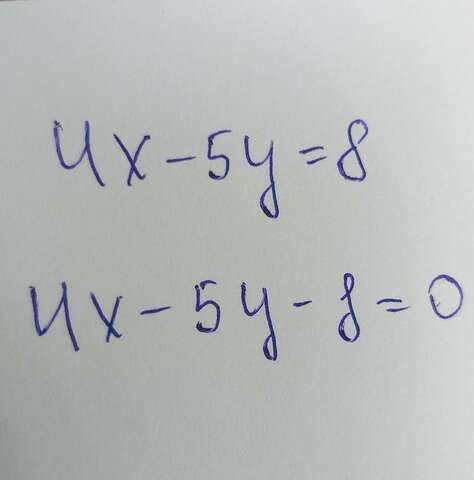 4x - 5y = 8
4x - 5y - 8 = 0